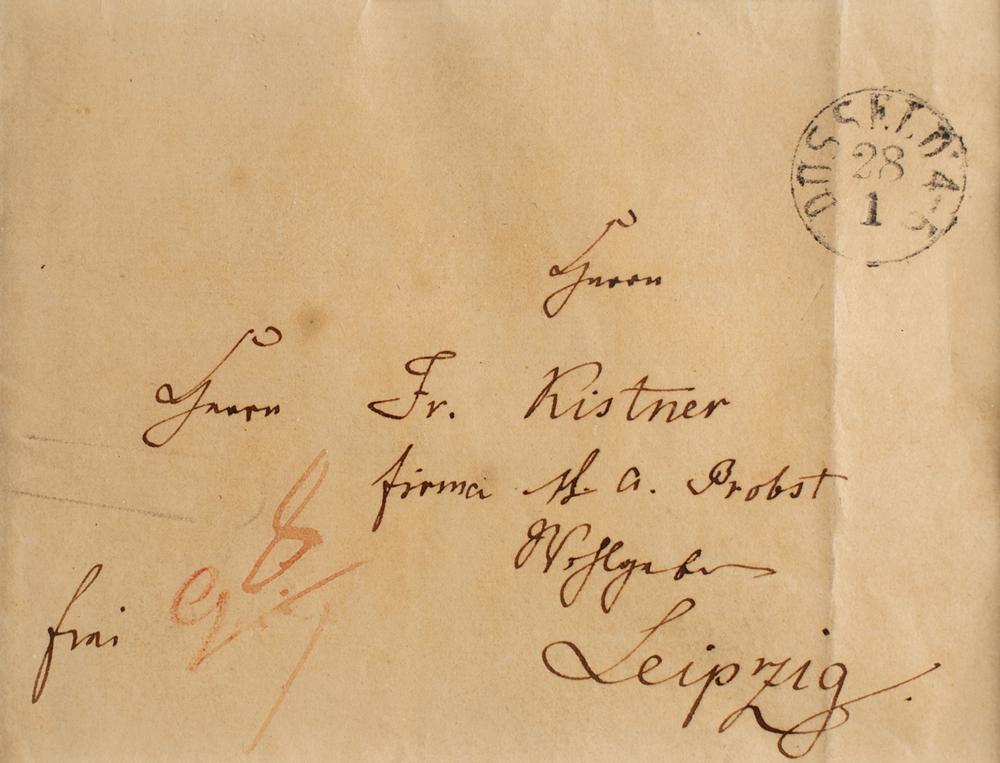 DÜSSELD 4-5
28
1
Herrn
Herrn Fr. Kistner
firma H. A. Probst
Wohlgeborn
frei
Leipzig.